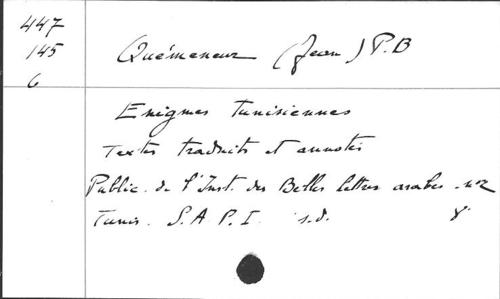 447
145
6
Quémeneur (Jean) P.B
Enigmes tunisiennes
Textes traduits et annotés
Public. de l'Inst. des Belles lettres arabes. n°2
Tunis. S.A P.I. s.d. 8°